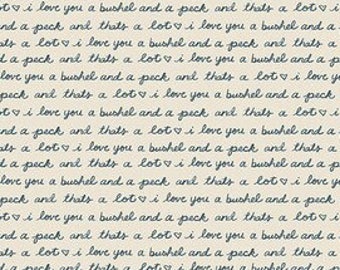 and a peck and thats a lot♡ i love you a bushel and a
thats a lot♡ i love you a bushel and a peck and thats
nd a peck and thats a lot♡ i love you a bushel and a p
love you a bushel and a peck and thats a lot♡ i love
ot♡ i love you a bushel and a peck and thats a lot♡
nd a peck and thats a lot♡ i love you a bushel and a
thats a lot♡ i love you a bushel and a peck and thats
d a peck and thats a lot♡ i love you a bushel and a p
love you a bushel and a peck and thats a lot♡ i love
ot♡ i love you a bushel and a peck and thats a lot♡
nd a peck and thats a lot♡ i love you a bushel and a
thats a lot♡ i love you a bushel and a peck and thats
d a peck and thats a lot♡ i love you a bushel and a p